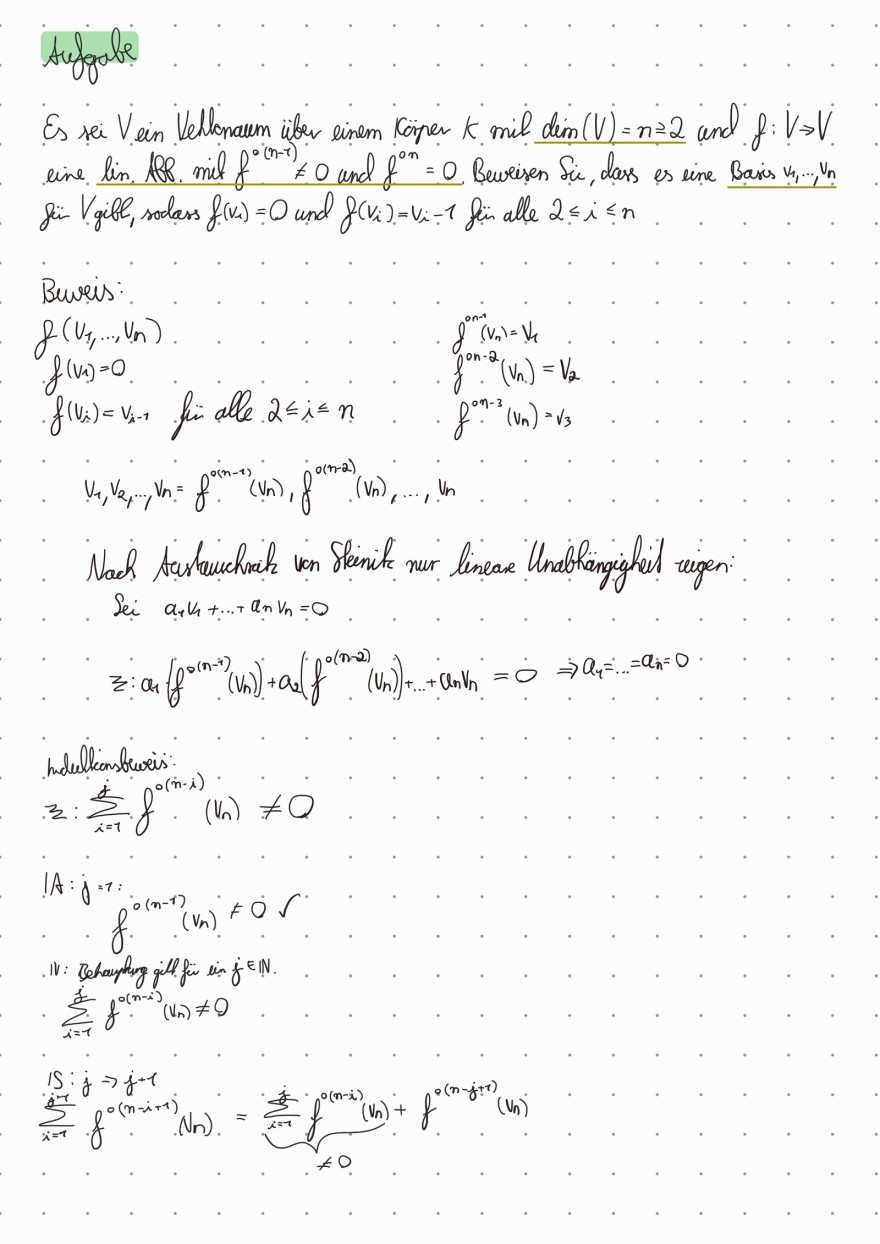 Aufgabe
Es sei V ein Vektorraum über einem Körper K mit dim(V) = n ≥ 2 und f: V → V
eine lin. Abb. mit f^{∘(n-1)} ≠ 0 und f^{∘n} = 0. Beweisen Sie, dass es eine Basis v₁,...,vₙ
für V gibt, sodass f(v₁) = 0 und f(vᵢ) = vᵢ-1 für alle 2 ≤ i ≤ n
Beweis:
f(v₁,...,vₙ)
f(v₁)=0
f(vᵢ) = vᵢ₋₁ für alle 2 ≤ i ≤ n
f^{∘n-1}(vₙ) = v₁
f^{∘n-2}(vₙ) = v₂
f^{∘n-3}(vₙ) = v₃
v₁,v₂,...,vₙ = f^{∘(n-1)}(vₙ), f^{∘(n-2)}(vₙ),..., vₙ
Nach von Steinitz nur lineare Unabhängigkeit zeigen:
Sei a₁v₁ +...+ aₙvₙ = 0
Z: a₁(f^{∘(n-1)}(vₙ)) + a₂(f^{∘(n-2)}(vₙ)) +...+ aₙvₙ = 0 ⇒ a₁=...=aₙ=0
Induktionsbeweis:
Z: ∑_{i=1}^{j} f^{∘(n-i)}(vₙ) ≠ 0
IA: j=1:
f^{∘(n-1)}(vₙ) ≠ 0 ✓
IV: Behauptung gilt für ein j ∈ ℕ.
∑_{i=1}^{j} f^{∘(n-i)}(vₙ) ≠ 0
IS: j → j+1
∑_{i=1}^{j+1} f^{∘(n-i+1)}(vₙ) = ∑_{i=1}^{j} f^{∘(n-i)}(vₙ) + f^{∘(n-j+1)}(vₙ)
≠ 0